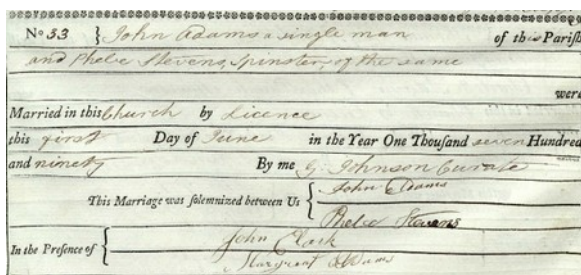 No 33 } John Adams a single man of this Parish
and Phebe Stevens, Spinster, of the same
were
Married in this Church by Licence
this first Day of June in the Year One Thousand seven Hundred
and ninety By me G Johnson Curate
This Marriage was solemnized between Us { John Adams
Phebe Stevens
In the Presence of { John Clark
Margreat Adams